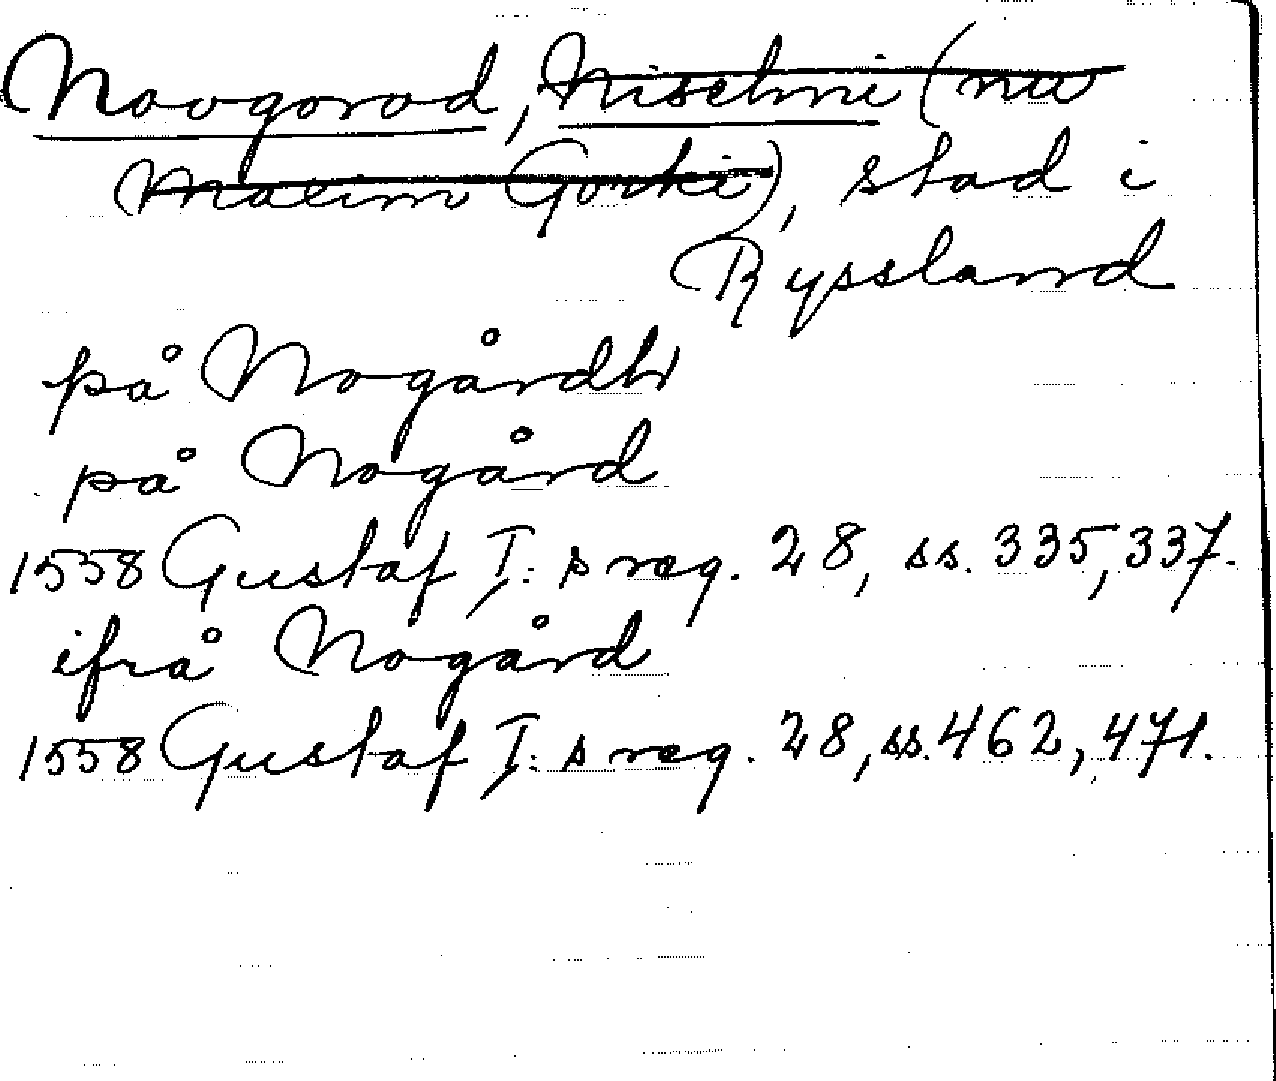 Novgorod, Nischni (nu
Maxim Gorki), stad i
Ryssland
på Nogårdh
på Nogård
1558 Gustaf I:s reg. 28, ss. 335, 337.
ifrå Nogård
1558 Gustaf I:s reg. 28, ss. 462, 471.